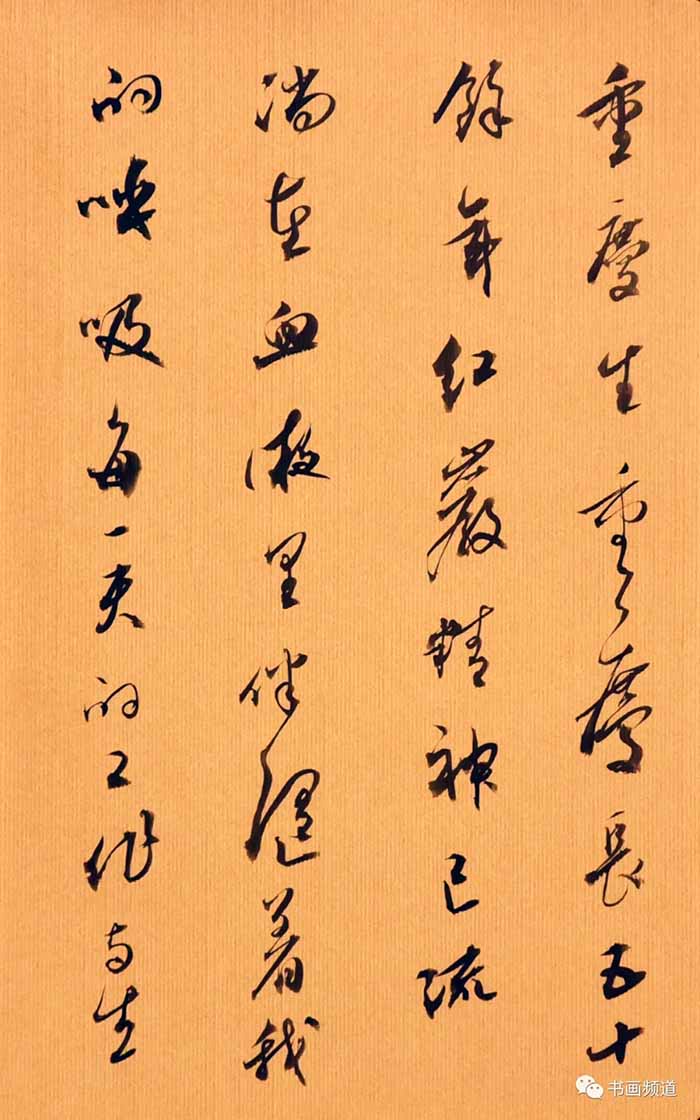 重慶生重慶長五十
餘年紅巖精神已流
淌在血液里伴隨着我
的呼吸每一天的工作与生
书画频道